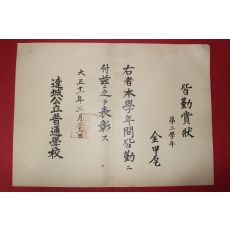 皆勤賞狀
第二學年
金甲
右者本學年間皆勤ニ
付茲ニ之ヲ表彰ス
大正十一年三月
達城公立普通學校